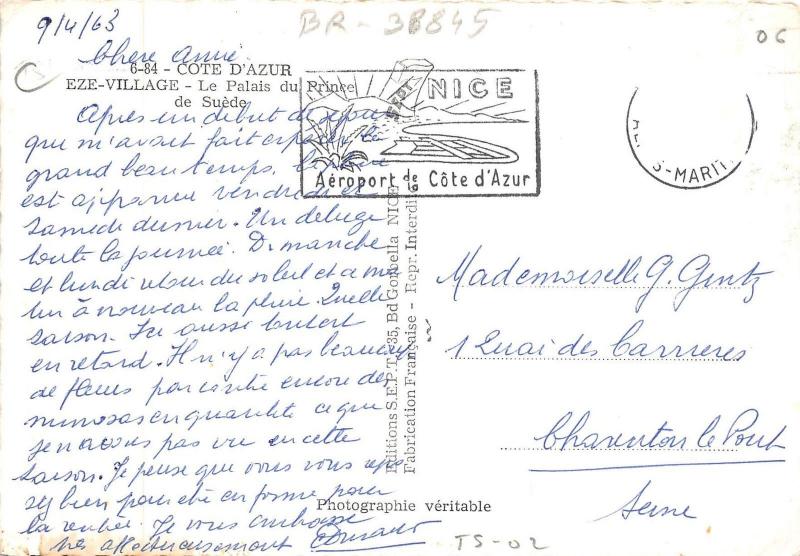 BR-38845
06
9/4/63
Chere Annie.
6-84 - COTE D'AZUR
EZE-VILLAGE - Le Palais du Prince
de Suède
Après un début de séjour
que m'avait fait espérer le
grand beau temps. la pluie
est apparue vendredi et
samedi dernier. Un déluge
toute la journée. Dimanche
et lundi retour du soleil et ce ma
tin à nouveau la pluie. Quelle
saison. Ici aussi tout est
en retard. Il n'y a pas beaucoup
de fleurs par contre encore des
mimosas en quantité ce que
je n'avais pas vu en cette
saison. Je pense que vous vous repo
sez bien pour être en forme pour
la rentrée. Je vous embrasse
très affectueusement
NICE
Aéroport de la Côte d'Azur
S-MARIT
Editions S.E.P.T. - 35, Bd Gorbella NICE
Fabrication Française - Repr. Interdite
Mademoiselle G. Gintz
1 Quai des Carrieres
Charenton le Pont
Seine
Photographie véritable
TS-02